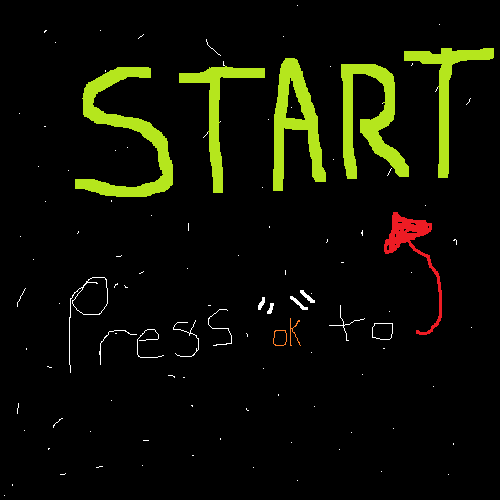 START
Press "ok" to